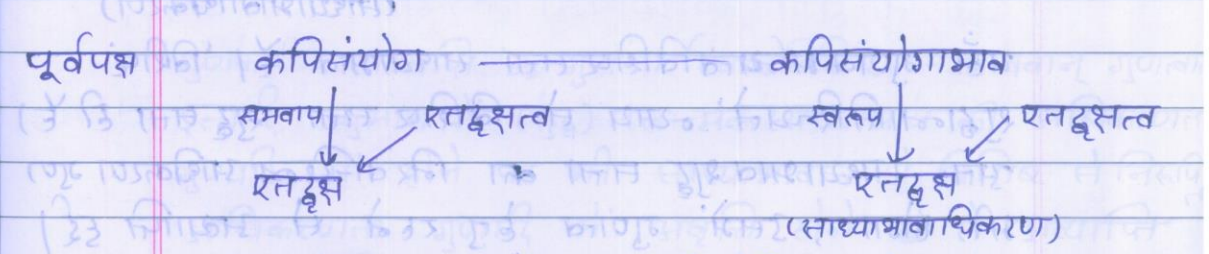 पूर्वपक्ष कपिसंयोग कपिसंयोगाभाव
समवाय एतद्वृक्षत्व स्वरूप एतद्वृक्षत्व
एतद्वृक्ष एतद्वृक्ष
(साध्याभावाधिकरण)